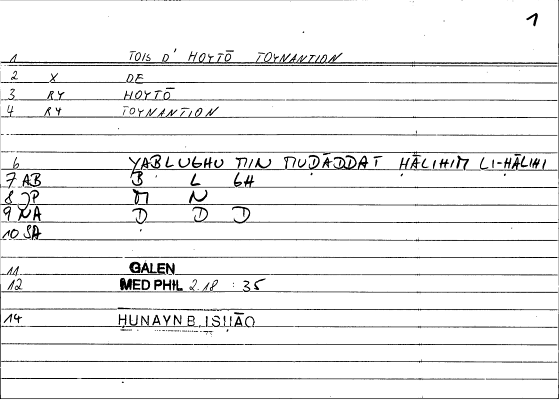 1
1 TOIS D' HOYTŌ TOYNANTION
2 X DE
3 RY HOYTŌ
4 RY TOYNANTION
6 YABLUGHU MIN MUDĀDDAT ḤĀLIHIM LI-ḤĀLIHI
7 AB B L GH
8 JP M N
9 NA D D D
10 SA
11 GALEN
12 MED PHIL 2.18 : 35
14 HUNAYN B. ISḤĀQ